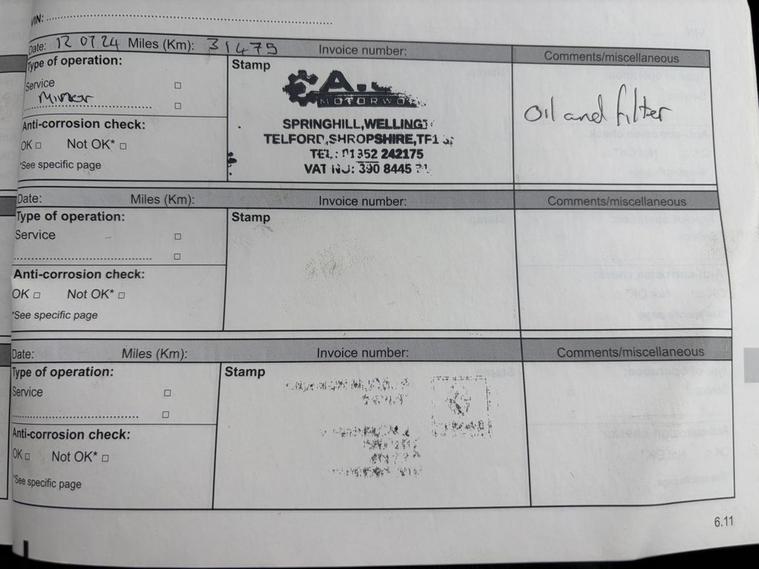 VIN:
Date: 12 07 24 Miles (Km): 31479 Invoice number: Comments/miscellaneous
Type of operation: Stamp
Service
Minor
Oil and filter
MOTORWO
SPRINGHILL, WELLINGT
TELFORD, SHROPSHIRE, TF1
TEL: 01952 242175
VAT NO: 390 8445
Anti-corrosion check:
OK Not OK*
*See specific page
Date: Miles (Km): Invoice number: Comments/miscellaneous
Type of operation: Stamp
Service
Anti-corrosion check:
OK Not OK*
*See specific page
Date: Miles (Km): Invoice number: Comments/miscellaneous
Type of operation: Stamp
Service
Anti-corrosion check:
OK Not OK*
*See specific page
6.11